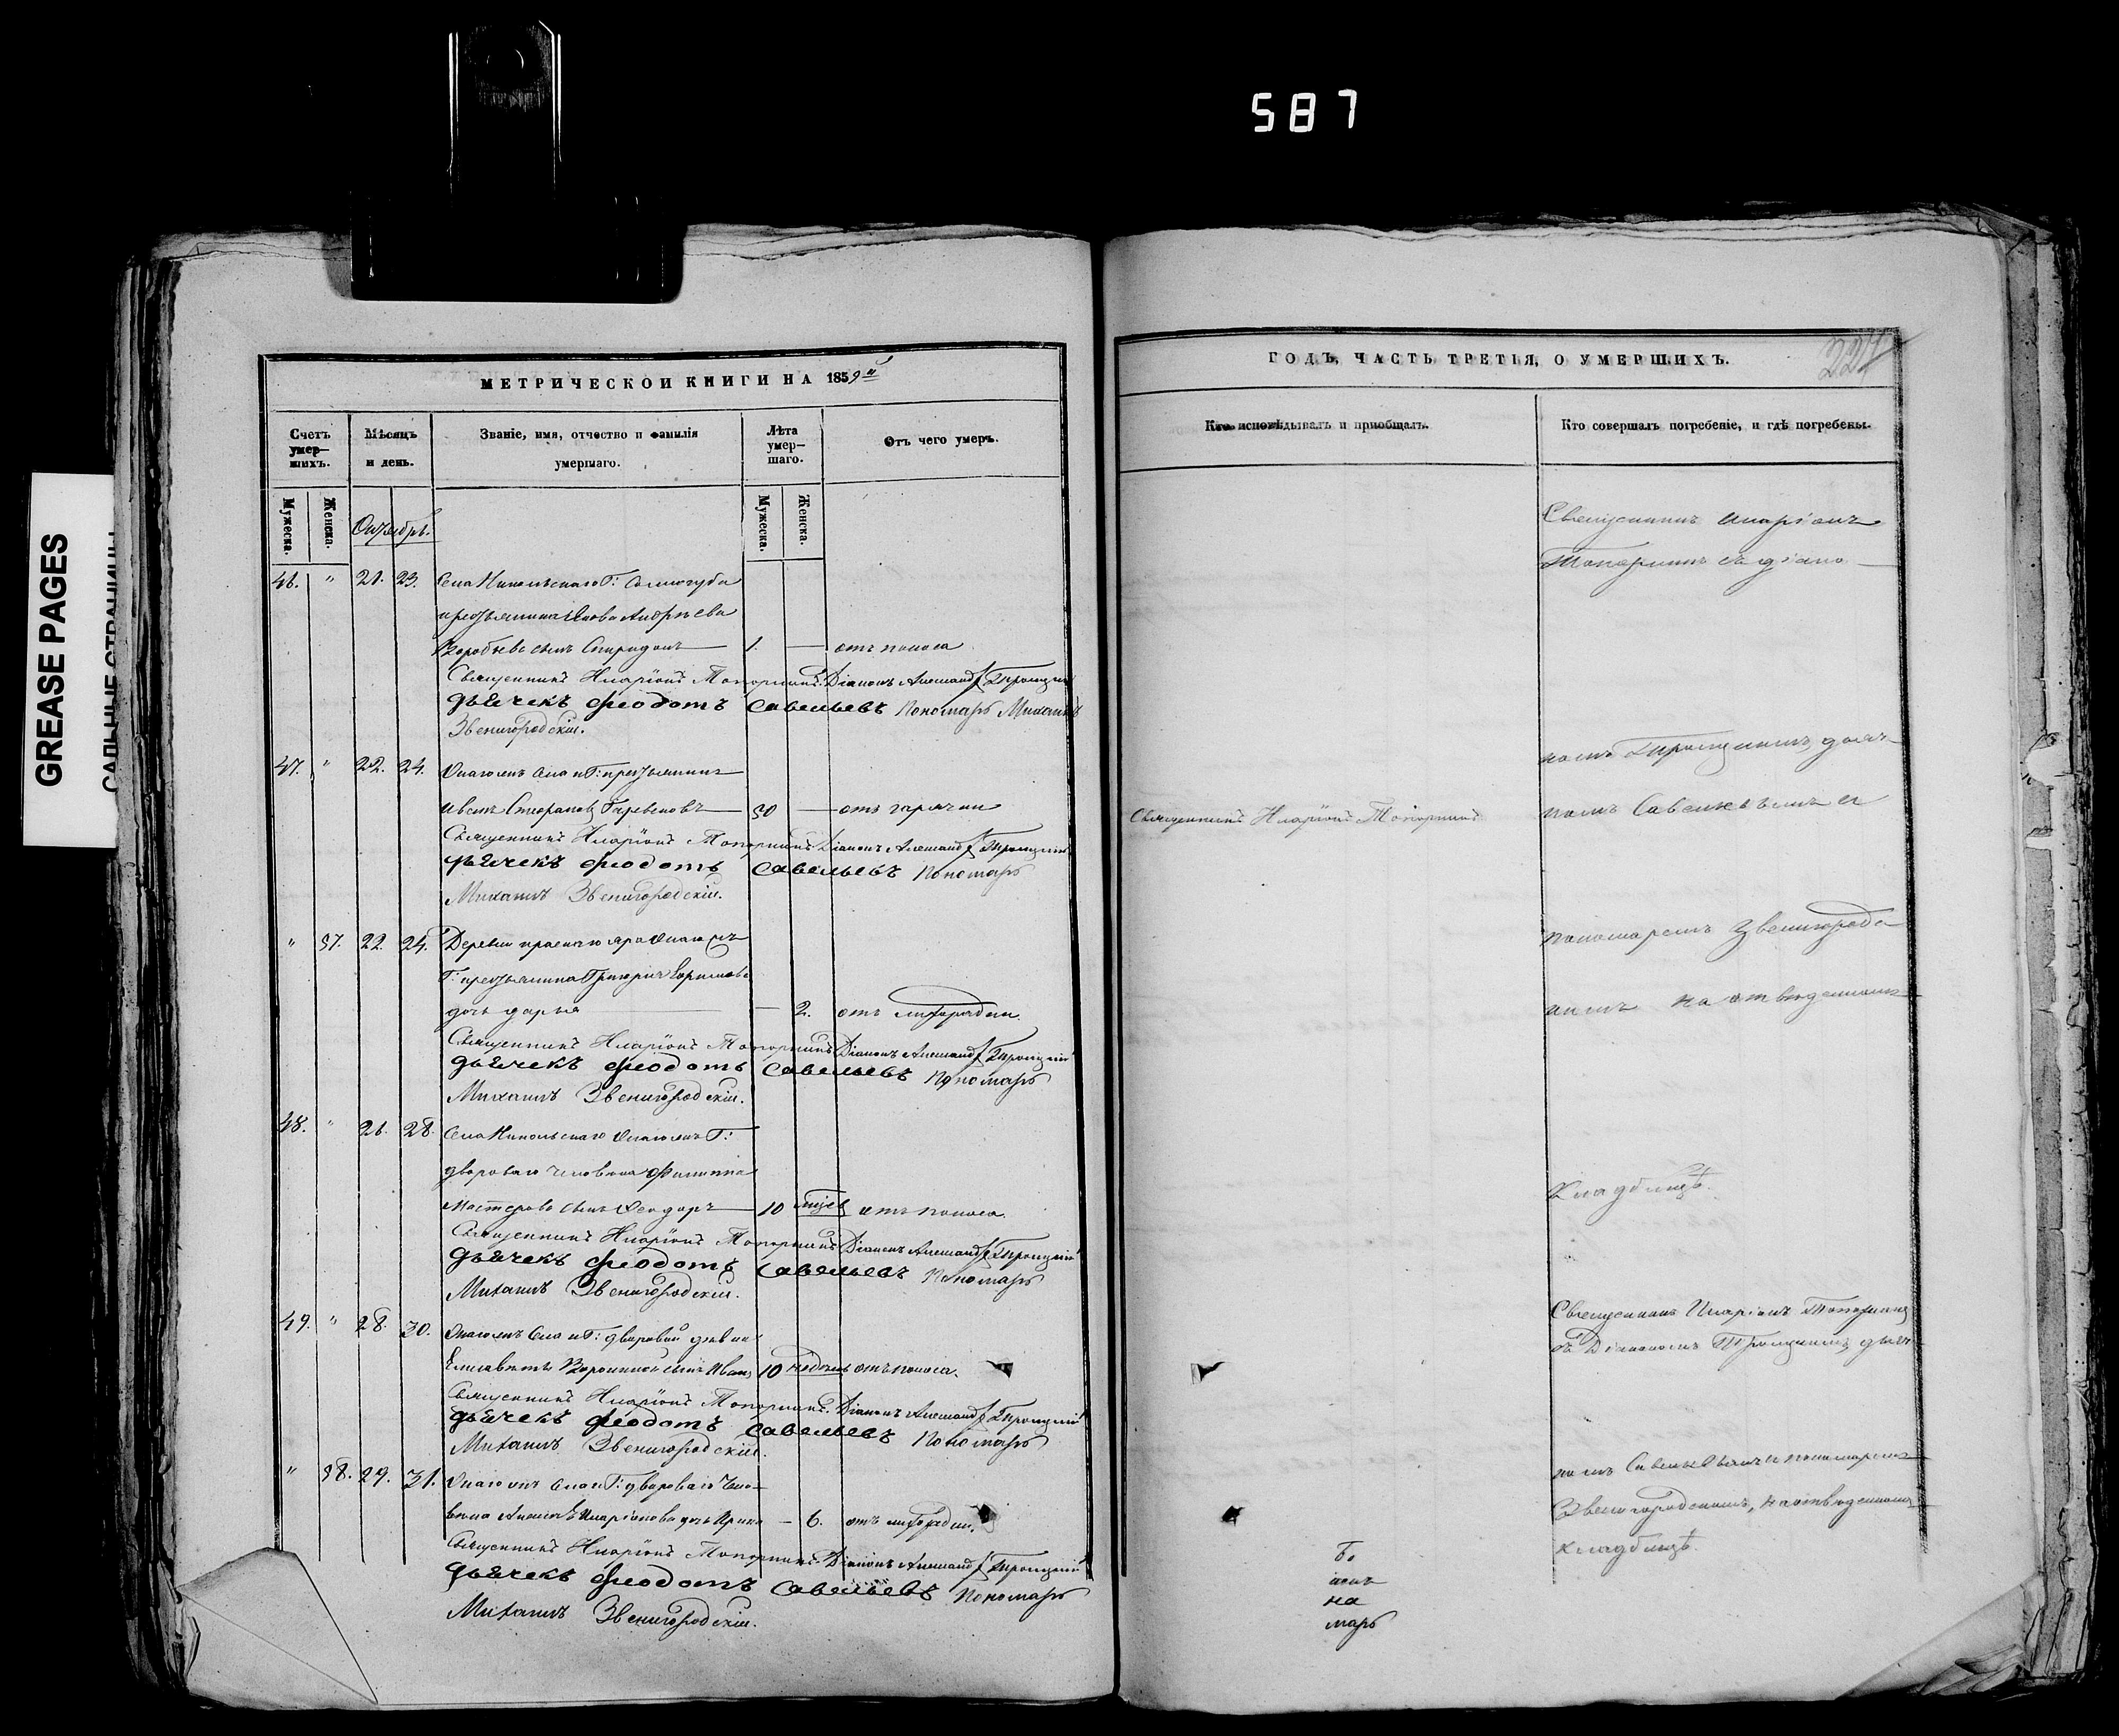 587
GREASE PAGES
САЛЬНЫЕ СТРАНИЦЫ
МЕТРИЧЕСКОЙ КНИГИ НА 1859й
Счетъ умер-шихъ.
Мѣсяцъ и день.
Званіе, имя, отчество и фамилія умершаго.
Лѣта умер-шаго.
Отъ чего умеръ.
Мужеска.
Женска.
Октябрь.
Мужеска.
Женска.
46. " 21. 23. Села Никольскаго Г: Сологуба
крестьянина Якова Андреева
Воробьева сынъ Спиридонъ 1. — отъ поноса
Священникъ Иларіонъ Топорнинъ Діаконъ Александръ Троицкій
Дьячекъ Феодотъ Савельевъ Пономарь Михаилъ
Звенигородскій.
47. " 22. 24. Онагожъ села и Г: крестьянинъ
50 — отъ горячки
Священникъ Иларіонъ Топорнинъ Діаконъ Александръ Троицкій
Дьячекъ Феодотъ Савельевъ Пономарь
Михаилъ Звенигородскій.
" 37. 22. 24. Деревни
Г: крестьянина Григорія
дочь Дарья — 2. отъ лихорадки.
Священникъ Иларіонъ Топорнинъ Діаконъ Александръ Троицкій
Дьячекъ Феодотъ Савельевъ Пономарь
Михаилъ Звенигородскій.
48. " 26. 28. Села Никольскаго онагожъ Г:
двороваго человека Филиппа
сынъ Феодоръ 10 мцев отъ поноса.
Священникъ Иларіонъ Топорнинъ Діаконъ Александръ Троицкій
Дьячекъ Феодотъ Савельевъ Пономарь
Михаилъ Звенигородскій.
49. " 28. 30. Онагожъ села и Г: дворовой девки
Елисаветы Ворониной сынъ Иванъ 10 недель отъ поноса.
Священникъ Иларіонъ Топорнинъ. Діаконъ Александръ Троицкій
Дьячекъ Феодотъ Савельевъ Пономарь
Михаилъ Звенигородскій.
" 38. 29. 31. Онагожъ села и Г: двороваго чело-
века Иларіонова дочь Ирина — 6. отъ лихорадки.
Священникъ Иларіонъ Топорнинъ Діаконъ Александръ Троицкій
Дьячекъ Феодотъ Савельевъ Пономарь
Михаилъ Звенигородскій.
ГОДЪ, ЧАСТЬ ТРЕТІЯ, О УМЕРШИХЪ.
Кто исповѣдывалъ и пріобщалъ.
Кто совершалъ погребеніе, и гдѣ погребены.
Священникъ Иларіонъ
Топорнинъ съ діако-
номъ Троицкимъ, дьяч-
Священникъ Иларіонъ Топорнинъ
комъ Савельевымъ и
пономаремъ Звенигородс-
кимъ на отведенномъ
кладбищѣ.
Священникъ Иларіонъ Топорнинъ
съ Діакономъ Троицкимъ, дьяч-
комъ Савельевымъ и пономаремъ
Звенигородскимъ, на отведенномъ
кладбищѣ.
на
марь